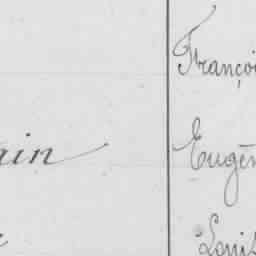 Françoi
ain
Eugèn
Louis